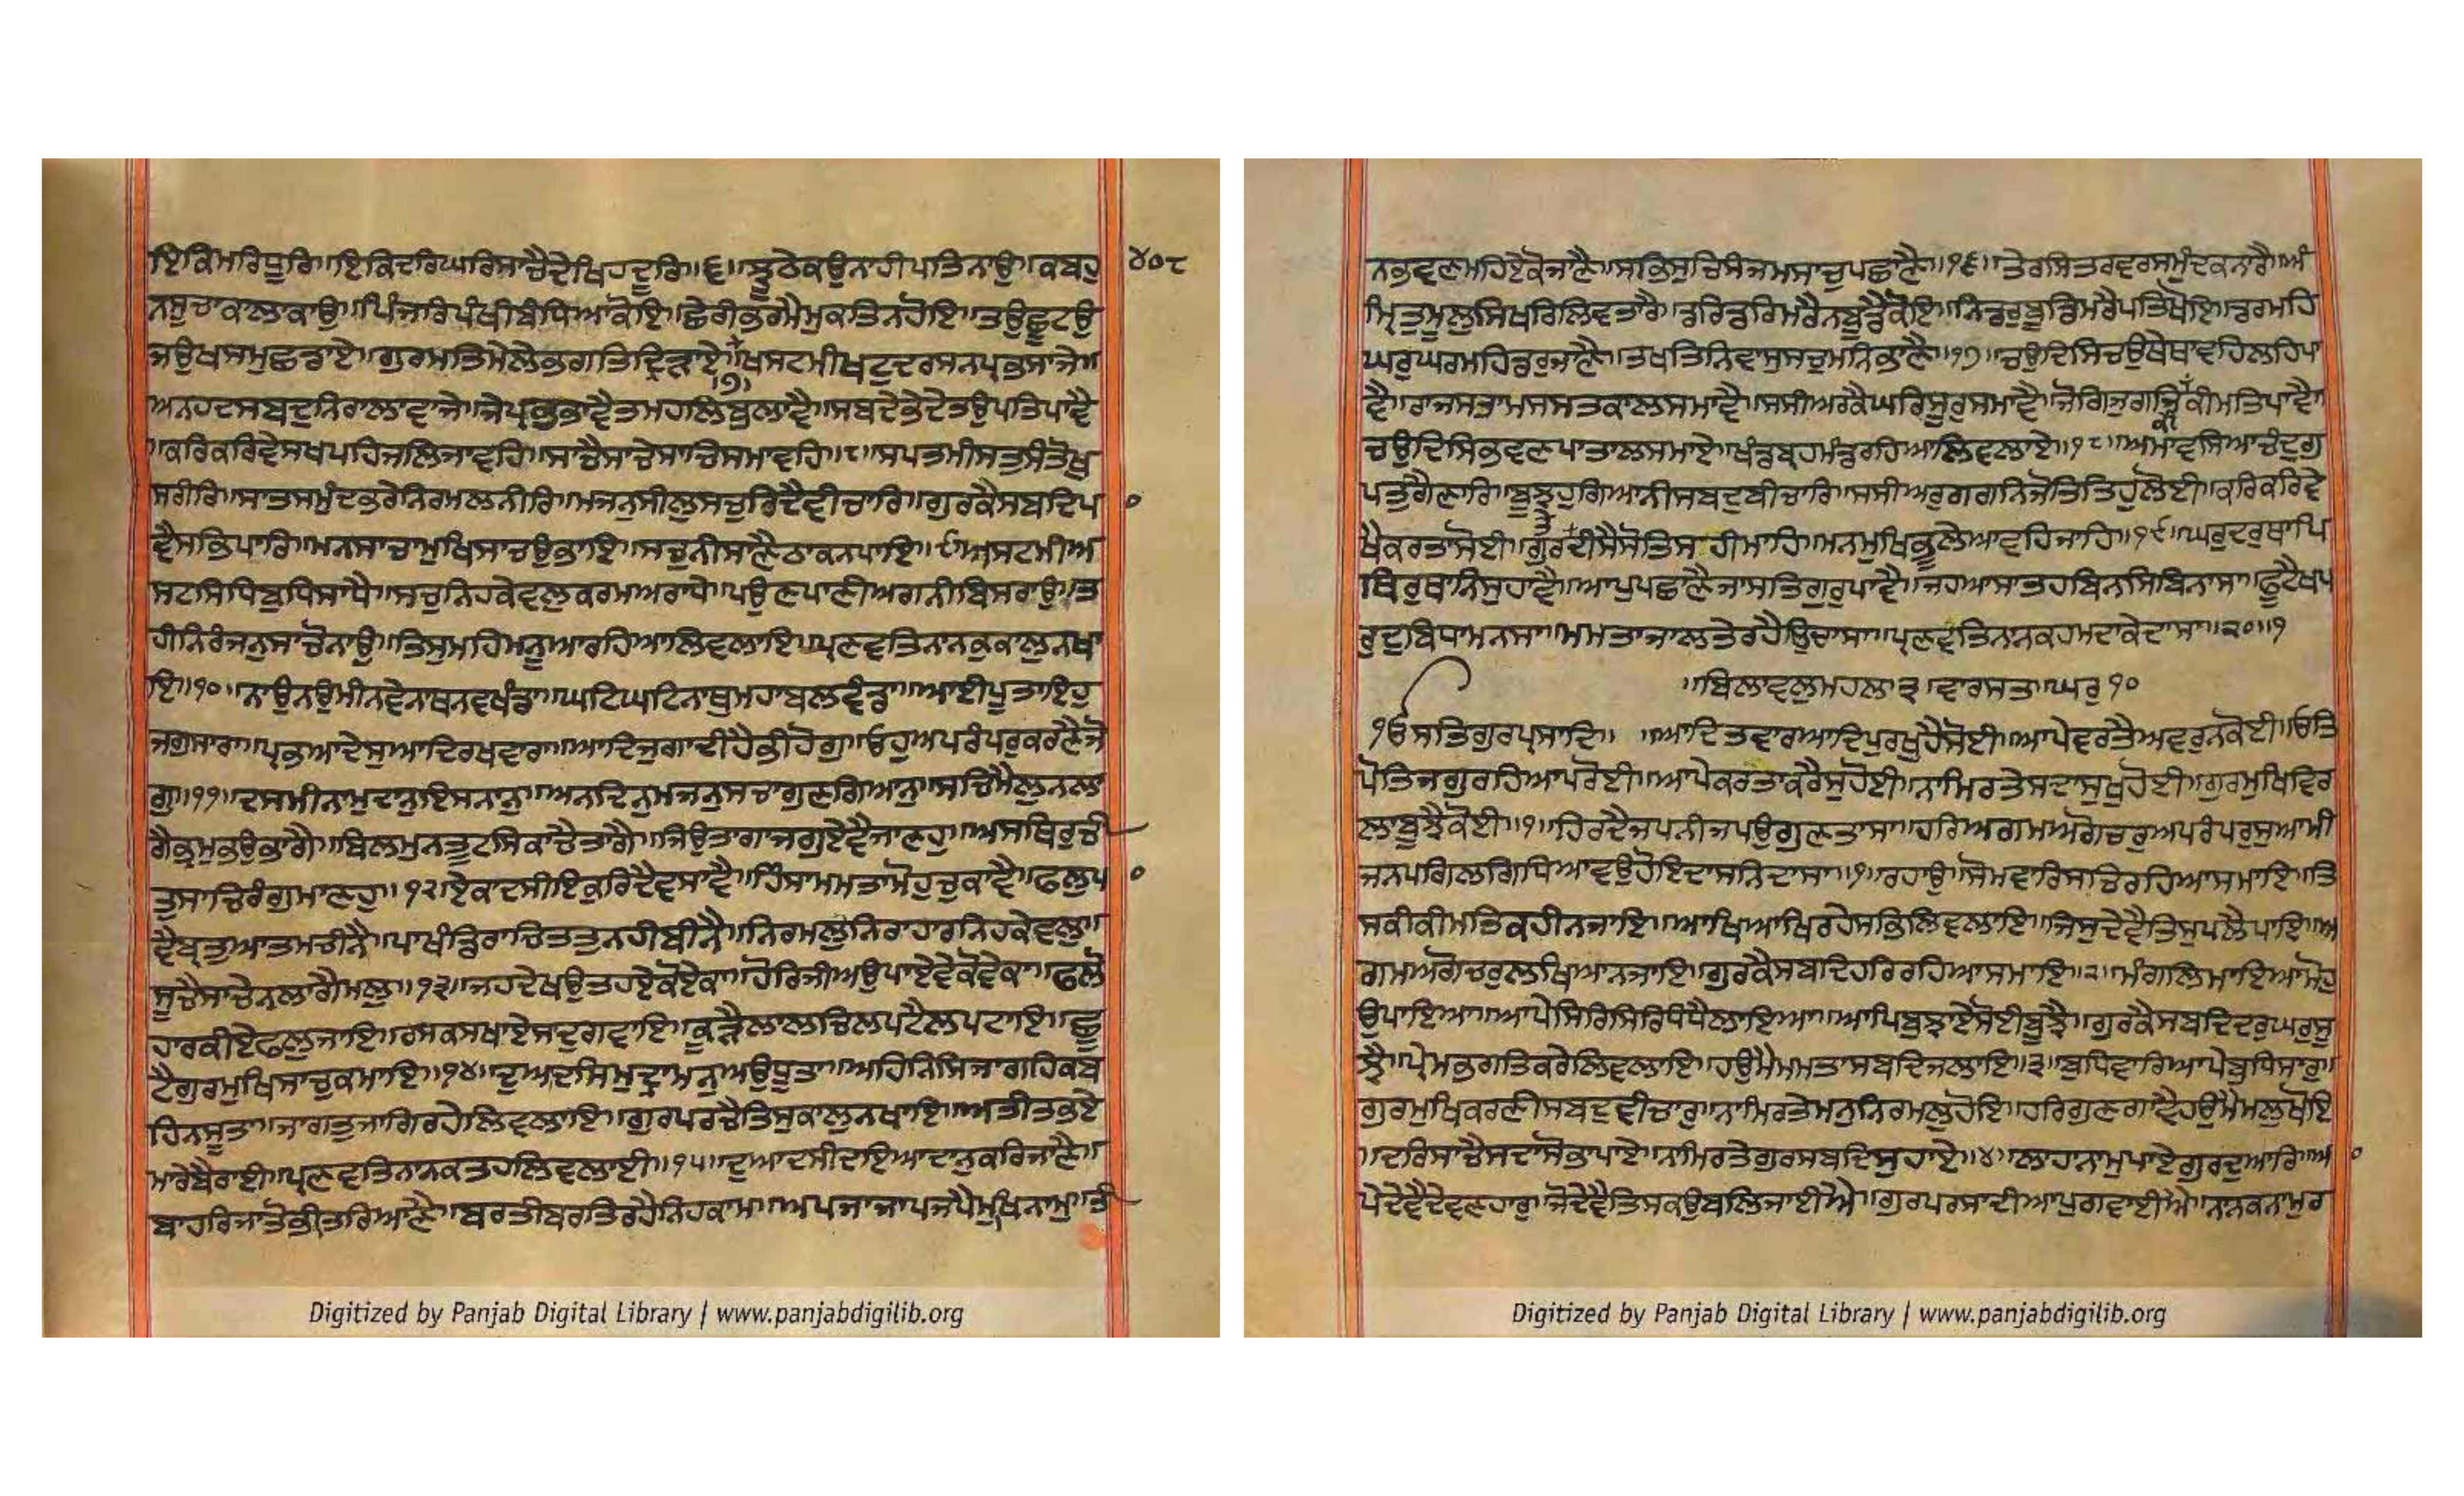 ਇਕਿਮਰਿਧੂਰਿ॥ਇਕਿਦਰਿਘਰਿਸਾਚੈਦੇਖਿਹਦੂਰਿ॥੬॥ਝੂਠੇਕਉਨਾਹੀਪਤਿਨਾਉ॥ਕਬਹੁ
੪੦੮
ਨਸੂਚਾਕਾਲਾਕਾਉ॥ਪਿੰਜਰਿਪੰਖੀਬੰਧਿਆਕੋਇ॥ਛੇਰੀਭਰਮੈਮੁਕਤਿਨਹੋਇ॥ਤਉਛੂਟਉ
ਜਉਖਸਮੁਛਡਾਏ॥ਗੁਰਮਤਿਮੇਲੇਭਗਤਿਦ੍ਰਿੜਾਏ॥ਖਸਟਮੀਖਟੁਦਰਸਨਪ੍ਰਭਸਾਜੇ॥
॥੭॥
ਅਨਹਦਸਬਦੁਨਿਰਾਲਾਵਾਜੇ॥ਜੇਪ੍ਰਭਭਾਵੈਤਮਹਲਿਬੁਲਾਵੈ॥ਸਬਦੇਭੇਦੇਤਉਪਤਿਪਾਵੈ
॥ਕਰਿਕਰਿਵੇਸਖਪਹਿਜਲਿਜਾਵਹਿ॥ਸਾਚੈਸਾਚੇਸਾਚਿਸਮਾਵਹਿ॥੮॥ਸਪਤਮੀਸਤੁਸੰਤੋਖੁ
ਸਰੀਰਿ॥ਸਾਤਸਮੁੰਦਭਰੇਨਿਰਮਲਨੀਰਿ॥ਮਜਨੁਸੀਲੁਸਚੁਰਿਦੈਵੀਚਾਰਿ॥ਗੁਰਕੈਸਬਦਿਪ
ਵੈਸਭਿਪਾਰਿ॥ਮਨਸਾਚਾਮੁਖਿਸਾਚਉਭਾਇ॥ਸਚੁਨੀਸਾਣੈਠਾਕਨਪਾਇ॥੯॥ਅਸਟਮੀਅ
ਸਟਸਿਧਿਬੁਧਿਸਾਧੈ॥ਸਚੁਨਿਹਕੇਵਲੁਕਰਮਅਰਾਧੇ॥ਪਉਣਪਾਣੀਅਗਨੀਬਿਸਰਾਉ॥ਤ
ਹੀਨਿਰੰਜਨੁਸਾਚੋਨਾਉ॥ਤਿਸੁਮਹਿਮਨੂਆਰਹਿਆਲਿਵਲਾਇ॥ਪ੍ਰਣਵਤਿਨਾਨਕੁਕਾਲੁਨਖਾ
ਇ॥੧੦॥ਨਾਉਨਉਮੀਨਵੇਨਾਥਨਵਖੰਡਾ॥ਘਟਿਘਟਿਨਾਥੁਮਹਾਬਲਵੰਡਾ॥ਆਈਪੂਤਾਇਹੁ
ਜਗੁਸਾਰਾ॥ਪ੍ਰਭਆਦੇਸੁਆਦਿਰਖਵਾਰਾ॥ਆਦਿਜੁਗਾਦੀਹੈਭੀਹੋਗੁ॥ਓਹੁਅਪਰੰਪਰੁਕਰਣੈਜੋ
ਗੁ॥੧੧॥ਦਸਮੀਨਾਮੁਦਾਨੁਇਸਨਾਨੁ॥ਅਨਦਿਨੁਮਜਨੁਸਚਾਗੁਣਗਿਆਨੁ॥ਸਚਿਮੈਲੁਨਲਾ
ਗੈਭ੍ਰਮੁਭਉਭਾਗੈ॥ਬਿਲਮੁਨਤੂਟਸਿਕਾਚੈਤਾਗੈ॥ਜਿਉਤਾਗਾਜਗੁਏਵੈਜਾਣਹੁ॥ਅਸਥਿਰੁਚੀ
ਤੁਸਾਚਿਰੰਗੁਮਾਣਹੁ॥੧੨॥ਏਕਾਦਸੀਇਕੁਰਿਦੈਵਸਾਵੈ॥ਹਿੰਸਾਮਮਤਾਮੋਹੁਚੁਕਾਵੈ॥ਫਲੁਪ
ਵੈਬ੍ਰਤੁਆਤਮਚੀਨੈ॥ਪਾਖੰਡਿਰਾਚਿਤਤੁਨਹੀਬੀਨੈ॥ਨਿਰਮਲੁਨਿਰਾਹਾਰਨਿਹਕੇਵਲੁ॥
ਸੂਚੈਸਾਚੇਨਲਾਗੈਮਲੁ॥੧੩॥ਜਹਦੇਖਉਤਹਏਕੋਏਕਾ॥ਹੋਰਿਜੀਅਉਪਾਏਵੇਕੋਵੇਕਾ॥ਫਲੋ
ਹਾਰਕੀਏਫਲੁਜਾਇ॥ਰਸਕਸਖਾਏਸਾਦੁਗਵਾਇ॥ਕੂੜੈਲਾਲਚਿਲਪਟੈਲਪਟਾਇ॥ਛੂ
ਟੈਗੁਰਮੁਖਿਸਾਚੁਕਮਾਇ॥੧੪॥ਦੁਆਦਸਿਮੁਦ੍ਰਾਮਨੁਅਉਧੂਤਾ॥ਅਹਿਨਿਸਿਜਾਗਹਿਕਬ
ਹਿਨਸੂਤਾ॥ਜਾਗਤੁਜਾਗਿਰਹੈਲਿਵਲਾਇ॥ਗੁਰਪਰਚੈਤਿਸੁਕਾਲੁਨਖਾਇ॥ਅਤੀਤਭਏ
ਮਾਰੇਬੈਰਾਈ॥ਪ੍ਰਣਵਤਿਨਾਨਕਤਹਲਿਵਲਾਈ॥੧੫॥ਦੁਆਦਸੀਦਇਆਦਾਨੁਕਰਿਜਾਣੈ॥
ਬਾਹਰਿਜਾਤੋਭੀਤਰਿਆਣੈ॥ਬਰਤੀਬਰਤਿਰਹੈਨਿਹਕਾਮ॥ਅਪਜਾਜਾਪਜਪੈਮੁਖਿਨਾਮੁ॥ਤੀ
Digitized by Panjab Digital Library | www.panjabdigilib.org
ਨਭਵਣਮਹਿਏਕੋਜਾਣੈ॥ਸਭਿਸੁਚਿਸੰਜਮਸਾਚੁਪਛਾਣੈ॥੧੬॥ਤੇਰਸਿਤਰਵਰਸਮੁੰਦਕਨਾਰੈ॥ਅੰ
ਮ੍ਰਿਤੁਮੂਲੁਸਿਖਰਿਲਿਵਤਾਰੈ॥ਡਰਿਡਰਿਮਰੈਨਬੂਡੈਕੋਇ॥ਨਿਡਰੁਬੂਡਿਮਰੈਪਤਿਖੋਇ॥ਡਰਮਹਿ
ਘਰੁਘਰਮਹਿਡਰੁਜਾਣੈ॥ਤਖਤਿਨਿਵਾਸੁਸਚੁਮਨਿਭਾਣੈ॥੧੭॥ਚਉਦਿਸਿਚਉਥੇਥਾਵਹਿਲਹਿਪਾ
ਵੈ॥ਰਾਜਸਤਾਮਸਸਤਕਾਲਸਮਾਵੈ॥ਸਸੀਅਰਕੈਘਰਿਸੂਰੁਸਮਾਵੈ॥ਜੋਗਿਜੁਗਤਿਕੀਮਤਿਪਾਵੈ॥
ਚਉਦਿਸਿਭਵਣਪਾਤਾਲਸਮਾਏ॥ਖੰਡਬ੍ਰਹਮੰਡਰਹਿਆਲਿਵਲਾਏ॥੧੮॥ਅਮਾਵਸਿਆਚੰਦੁਗੁ
ਪਤੁਗੈਣਾਰਿ॥ਬੂਝਹੁਗਿਆਨੀਸਬਦੁਬੀਚਾਰਿ॥ਸਸੀਅਰੁਗਗਨਿਜੋਤਿਤਿਹੁਲੋਈ॥ਕਰਿਕਰਿਵੇ
ਖੈਕਰਤਾਸੋਈ॥ਗੁਰਤੇਦੀਸੈਸੋਤਿਸਹੀਮਾਹਿ॥ਮਨਮੁਖਿਭੂਲੇਆਵਹਿਜਾਹਿ॥੧੯॥ਘਰੁਦਰੁਥਾਪਿ
ਥਿਰੁਥਾਨਿਸੁਹਾਵੈ॥ਆਪੁਪਛਾਣੈਜਾਸਤਿਗੁਰੁਪਾਵੈ॥ਜਹਆਸਾਤਹਬਿਨਸਿਬਿਨਾਸਾ॥ਫੂਟੈਖਪ
ਰੁਦੁਬਿਧਾਮਨਸਾ॥ਮਮਤਾਜਾਲਤੇਰਹੈਉਦਾਸਾ॥ਪ੍ਰਣਵਤਿਨਾਨਕਹਮਤਾਕੇਦਾਸਾ॥੨੦॥੧
॥ਬਿਲਾਵਲੁਮਹਲਾ੩॥ਵਾਰਸਤਾ॥ਘਰੁ੧੦
ੴਸਤਿਗੁਰਪ੍ਰਸਾਦਿ॥॥ਆਦਿਤਵਾਰਆਦਿਪੁਰਖੁਹੈਸੋਈ॥ਆਪੇਵਰਤੈਅਵਰੁਨਕੋਈ॥ਓਤਿ
ਪੋਤਿਜਗੁਰਹਿਆਪਰੋਈ॥ਆਪੇਕਰਤਾਕਰੈਸੁਹੋਈ॥ਨਾਮਿਰਤੇਸਦਾਸੁਖੁਹੋਈ॥ਗੁਰਮੁਖਿਵਿਰ
ਲਾਬੂਝੈਕੋਈ॥੧॥ਹਿਰਦੈਜਪਨੀਜਪਉਗੁਣਤਾਸਾ॥ਹਰਿਅਗਮਅਗੋਚਰੁਅਪਰੰਪਰੁਸੁਆਮੀ
ਜਨਪਗਿਲਗਿਧਿਆਵਉਹੋਇਦਾਸਨਿਦਾਸਾ॥੧॥ਰਹਾਉ॥ਸੋਮਵਾਰਿਸਾਚਿਰਹਿਆਸਮਾਇ॥ਤਿ
ਸਕੀਕੀਮਤਿਕਹੀਨਜਾਇ॥ਆਖਿਆਖਿਰਹੇਸਭਿਲਿਵਲਾਇ॥ਜਿਸੁਦੇਵੈਤਿਸੁਪਲੈਪਾਇ॥ਅ
ਗਮਅਗੋਚਰੁਲਖਿਆਨਜਾਇ॥ਗੁਰਕੈਸਬਦਿਹਰਿਰਹਿਆਸਮਾਇ॥੨॥ਮੰਗਲਿਮਾਇਆਮੋਹੁ
ਉਪਾਇਆ॥ਆਪੇਸਿਰਿਸਿਰਿਧੰਧੈਲਾਇਆ॥ਆਪਿਬੁਝਾਏਸੋਈਬੂਝੈ॥ਗੁਰਕੈਸਬਦਿਦਰੁਘਰੁਸੂ
ਝੈ॥ਪ੍ਰੇਮਭਗਤਿਕਰੇਲਿਵਲਾਇ॥ਹਉਮੈਮਮਤਾਸਬਦਿਜਲਾਇ॥੩॥ਬੁਧਿਵਾਰਿਆਪੇਬੁਧਿਸਾਰੁ॥
ਗੁਰਮੁਖਿਕਰਣੀਸਬਦੁਵੀਚਾਰੁ॥ਨਾਮਿਰਤੇਮਨੁਨਿਰਮਲੁਹੋਇ॥ਹਰਿਗੁਣਗਾਵੈਹਉਮੈਮਲੁਖੋਇ
॥ਦਰਿਸਾਚੈਸਦਾਸੋਭਾਪਾਏ॥ਨਾਮਿਰਤੇਗੁਰਸਬਦਿਸੁਹਾਏ॥੪॥ਲਾਹਾਨਾਮੁਪਾਏਗੁਰਦੁਆਰਿ॥ਆ
ਪੇਦੇਵੈਦੇਵਣਹਾਰੁ॥ਜੋਦੇਵੈਤਿਸਕਉਬਲਿਜਾਈਐ॥ਗੁਰਪਰਸਾਦੀਆਪੁਗਵਾਈਐ॥ਨਾਨਕਨਾਮੁਰ
Digitized by Panjab Digital Library | www.panjabdigilib.org